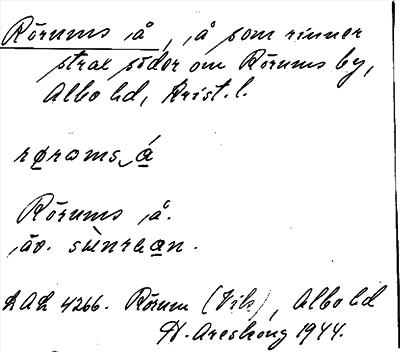 Rörums å, å som rinner
strax söder om Rörums by,
Albo hd, Krist. l.
rørωms á
Rörums å.
äv. sùnrean.
LAL 4266. Rörum (Vik), Albo hd
H. Areskoug 1944.